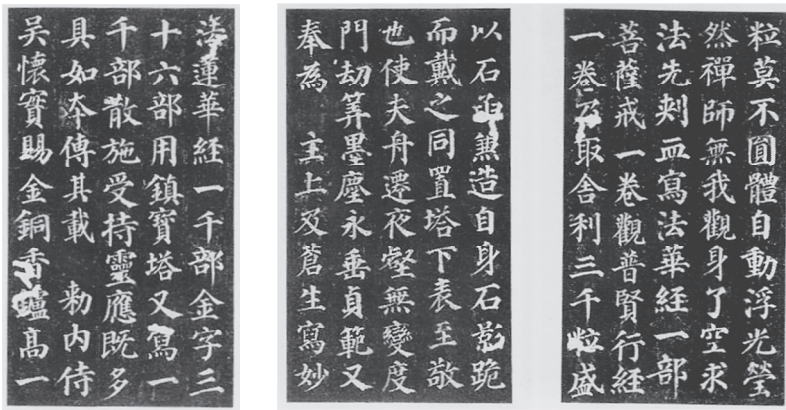 粒莫不圓體自動浮光瑩
然禪師無我觀身了空求
法先刾血寫法華經一部
菩薩戒一卷觀普賢行經
一卷乃取舍利三千粒盛
以石函兼造自身石影跪
而戴之同置塔下表至敬
也使夫舟遷夜壑無變度
門劫筭墨塵永垂貞範又
奉為 主上及蒼生寫妙
法蓮華經一千部金字三
十六部用鎮寶塔又寫一
千部散施受持靈應既多
具如本傳其載 勑內侍
吳懷實賜金銅香鑪高一